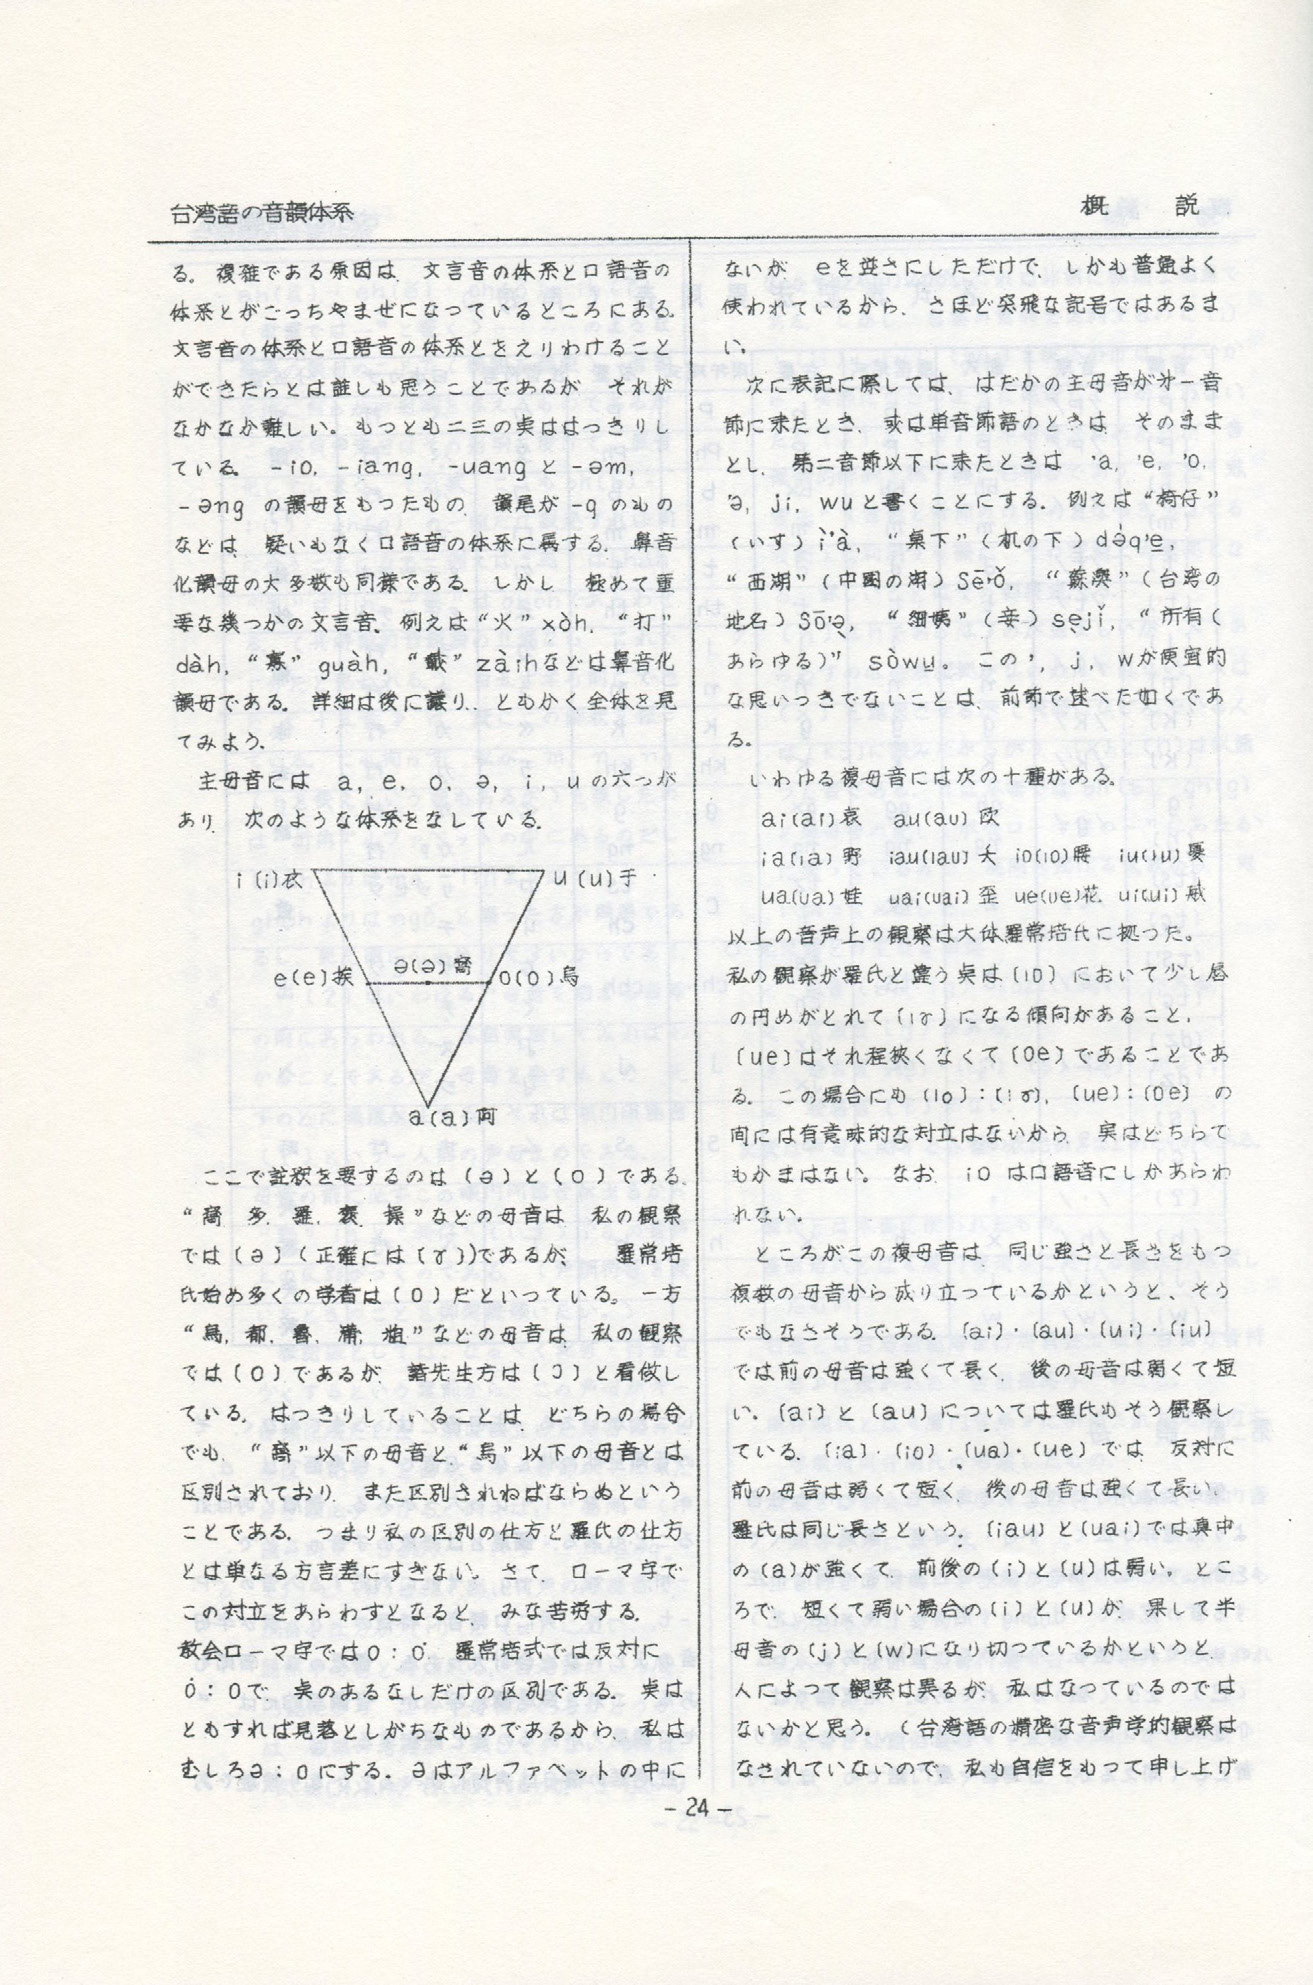 台湾語の音韻体系
概 説
る。複雑である原因は、文言音の体系と口語音の
体系とがごっちゃまぜになっているところにある。
文言音の体系と口語音の体系とをえりわけること
ができたらとは誰しも思うことであるが、それが
なかなか難しい。もっとも二三の点ははっきりし
ている。-io, -iang, -uang と -əm,
-əng の韻母をもったもの、韻尾が -q のもの
などは、疑いもなく口語音の体系に属する。鼻音
化韻母の大多数も同様である。しかし、極めて重
要な幾つかの文言音、例えば“火”xòh, “打”
dàh, “寒” guàh, “ ” zàihなどは鼻音化
韻母である。詳細は後に譲り、ともかく全体を見
てみよう。
主母音には a, e, o, ə, i, u の六つが
あり、次のような体系をなしている。
i (i)衣
u (u)于
e(e)挨
ə(ə)窩
o(o)烏
a(a)阿
ここで註釈を要するのは(ə)と(o)である。
“窩、多、羅、褒、操”などの母音は、私の観察
では(ə)(正確には(ɤ))であるが、羅常培
氏始め多くの学者は(o)だといっている。一方
“烏、都、魯、 、租”などの母音は、私の観察
では(o)であるが、諸先生方は(ɔ)と看做し
ている。はっきりしていることは、どちらの場合
でも、“窩”以下の母音と“烏”以下の母音とは
区別されており、また区別されねばならぬという
ことである。つまり私の区別の仕方と羅氏の仕方
とは単なる方言差にすぎない。さて、ローマ字で
この対立をあらわすとなると、みな苦労する。
教会ローマ字ではo：o͘、羅常培式では反対に
o͘：oで、点のあるなしだけの区別である。点は
ともすれば見落としがちなものであるから、私は
むしろə：oにする。əはアルファベットの中に
ないが、eを逆さにしただけで、しかも普通よく
使われているから、さほど突飛な記号ではあるま
い。
次に表記に際しては、はだかの主母音が才一音
節に来たとき、或は単音節語のときは、そのまま
とし、第二音節以下に来たときは 'a, 'e, 'o,
'ə, ji, wuと書くことにする。例えば“椅仔”
(いす) ì'à, “桌下”(机の下) də̀q'e̱,
“西湖”(中国の湖) Sē'ǒ, “蘇澳”(台湾の
地名) Sō'ə̱, “細姨”(妾) se̱jǐ, “所有(
あらゆる)” sòwu̱。この', j, wが便宜的
な思いつきでないことは、前節で述べた如くであ
る。
いわゆる複母音には次の十種がある。
ai(aɪ)哀 au(au)欧
ia(ɪa)野 iau(ɪau)夭 io(ɪo)腰 iu(ɪu)憂
ua(ua)娃 uai(uai)歪 ue(ue)花 ui(ui)威
以上の音声上の観察は大体羅常培氏に拠った。
私の観察が羅氏と違う点は(ɪo)において少し唇
の円めがとれて(ɪɤ)になる傾向があること、
(ue)はそれ程狭くなくて(oe)であることであ
る。この場合にも(ɪo)：(ɪɤ), (ue)：(oe) の
間には有意味的な対立はないから、実はどちらで
もかまわない。なお、io は口語音にしかあらわ
れない。
ところがこの複母音は、同じ強さと長さをもつ
複数の母音から成り立っているかというと、そう
でもなさそうである。(ai)・(au)・(ui)・(iu)
では前の母音は強くて長く、後の母音は弱くて短
い。(ai)と(au)については羅氏もそう観察し
ている。(ia)・(io)・(ua)・(ue) では、反対に
前の母音は弱くて短く、後の母音は強くて長い。
羅氏は同じ長さという。(iau)と(uai)では真中
の(a)が強くて、前後の(i)と(u)は弱い。とこ
ろで、短くて弱い場合の(i)と(u)が、果して半
母音の(j)と(w)になり切っているかというと、
人によって観察は異るが、私はなっているのでは
ないかと思う。(台湾語の精密な音声学的観察は
なされていないので、私も自信をもって申し上げ
- 24 -